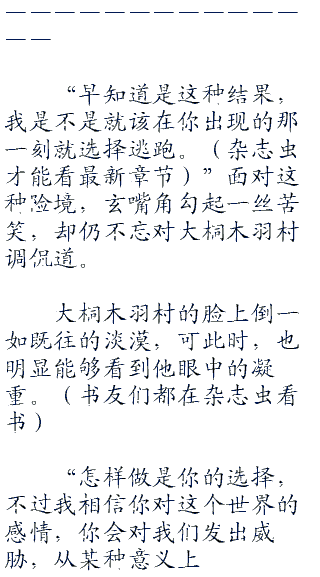 ————————————
——
“早知道是这种结果，
我是不是就该在你出现的那
一刻就选择逃跑。（杂志虫
才能看最新章节）”面对这
种险境，玄嘴角勾起一丝苦
笑，却仍不忘对大桐木羽村
调侃道。
大桐木羽村的脸上倒一
如既往的淡漠，可此时，也
明显能够看到他眼中的凝
重。（书友们都在杂志虫看
书）
“怎样做是你的选择，
不过我相信你对这个世界的
感情，你会对我们发出威
胁，从某种意义上